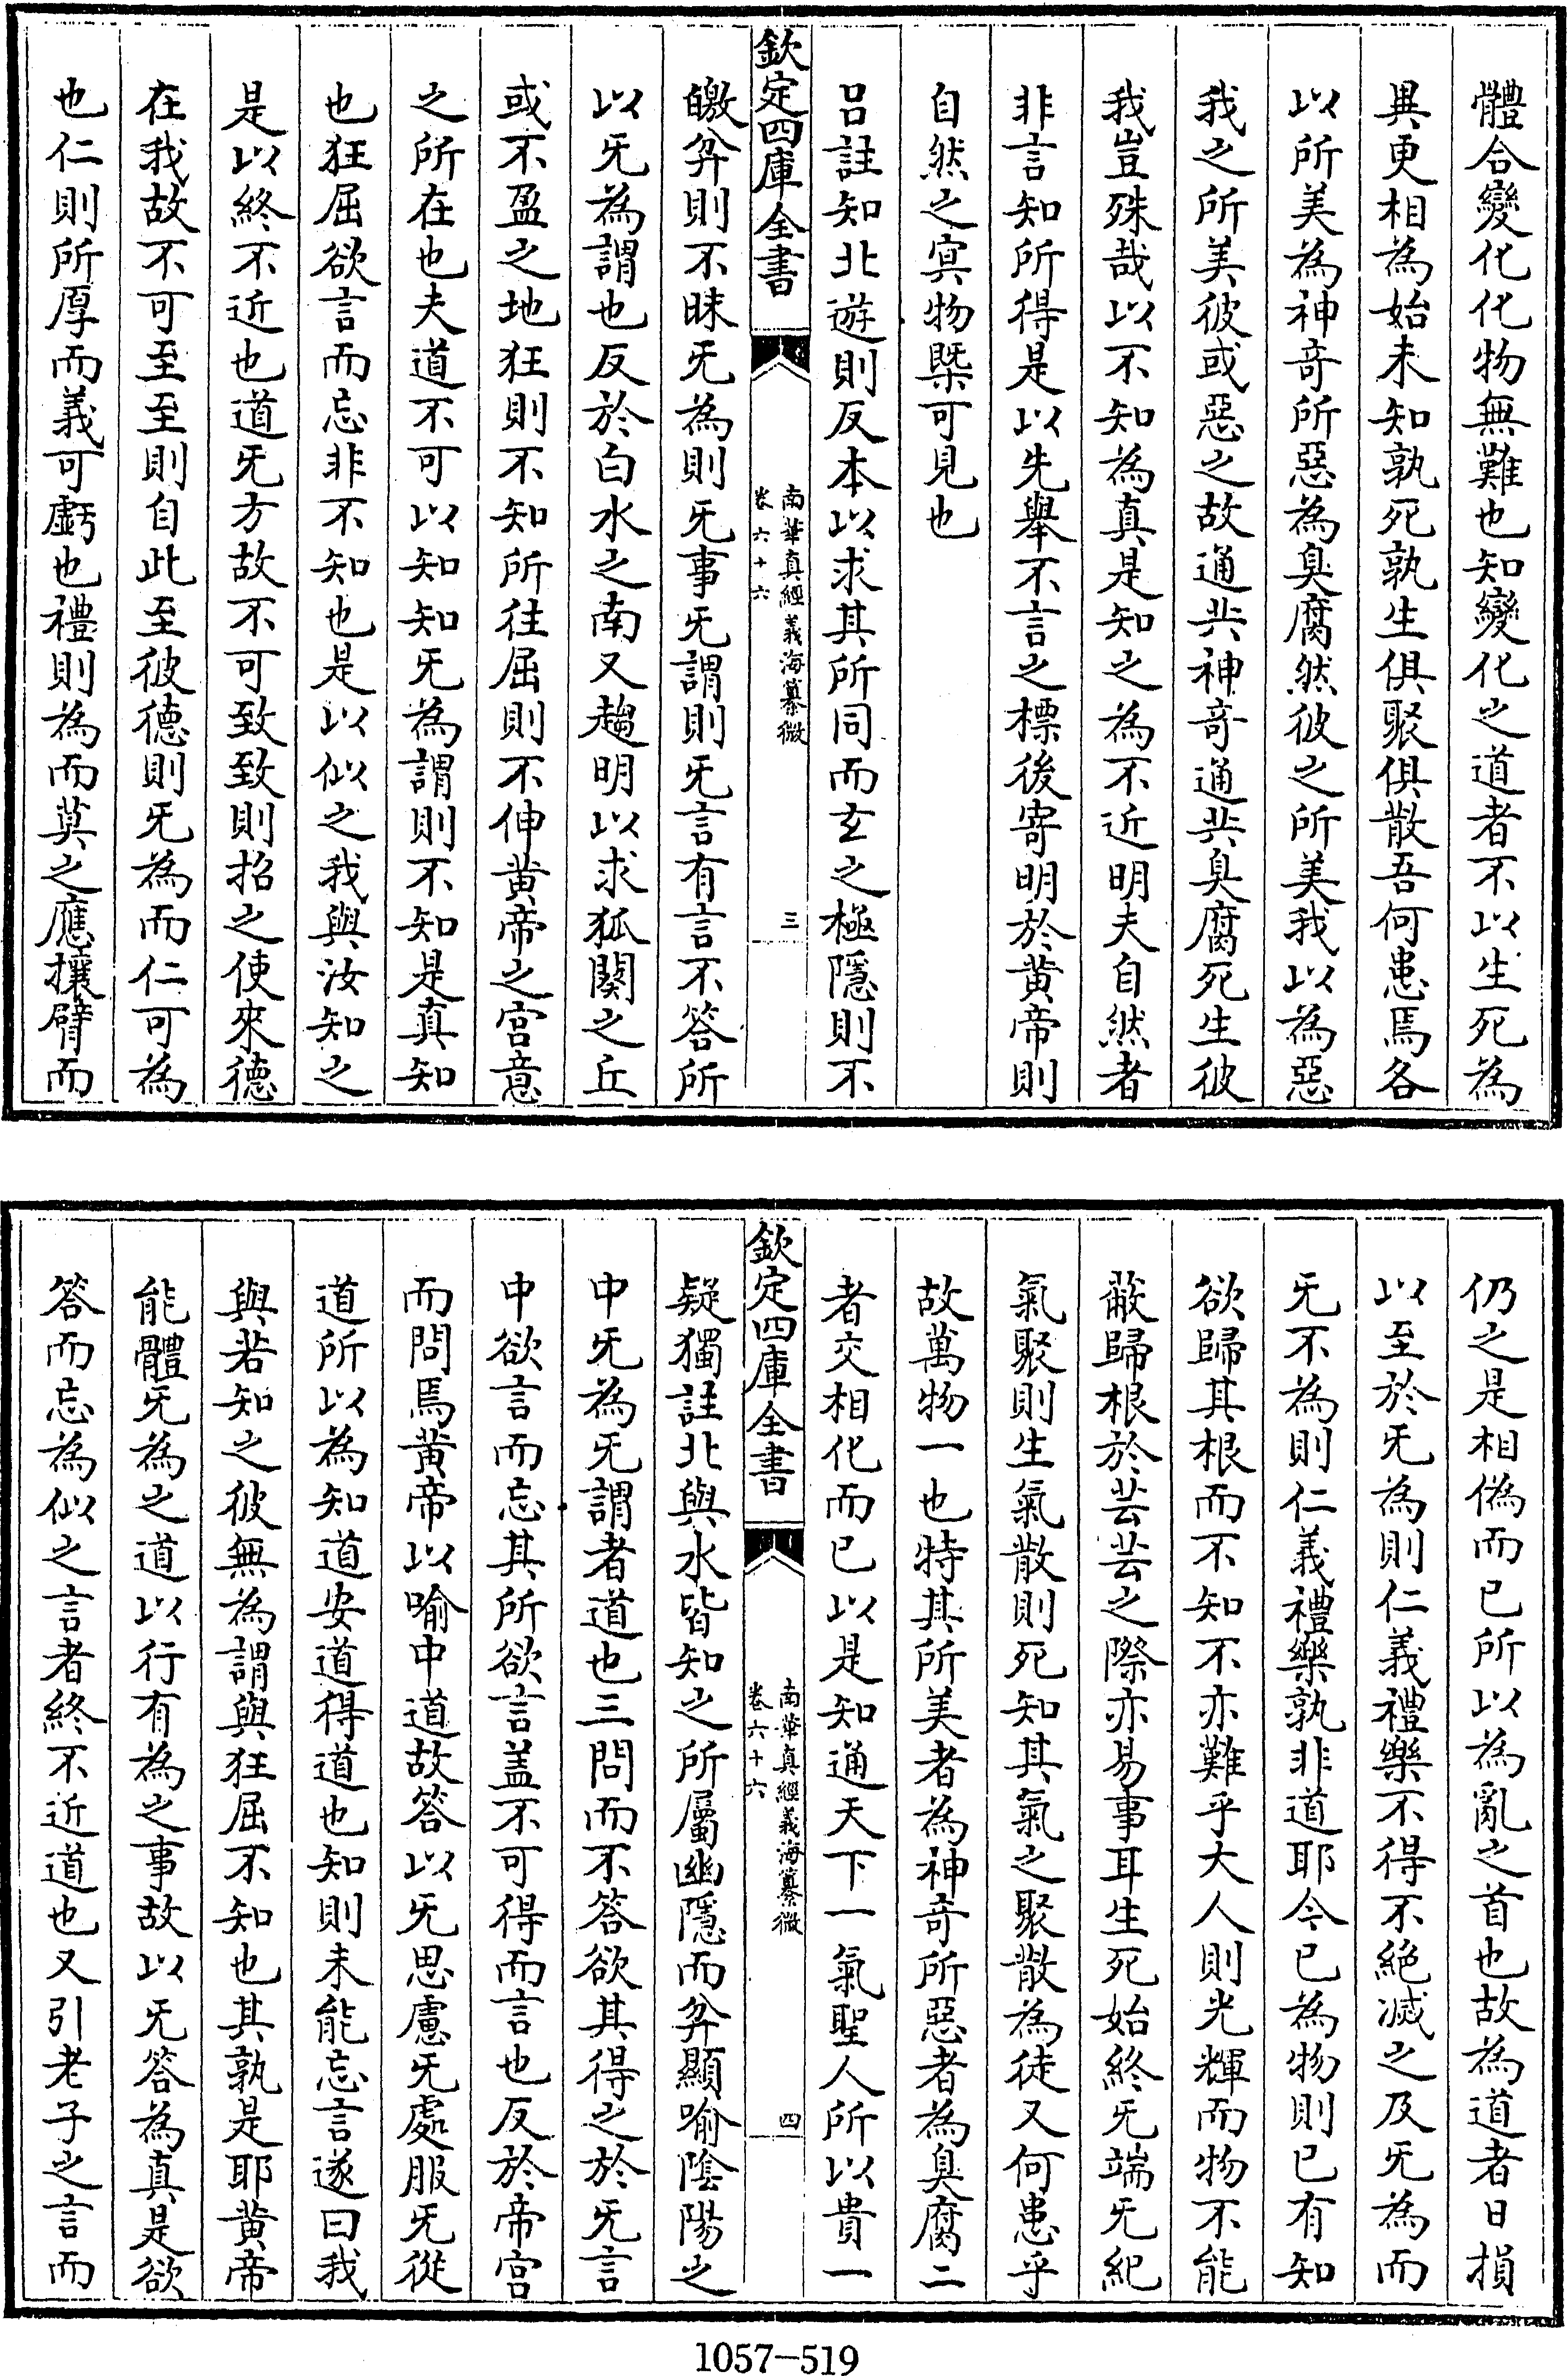 體合變化化物無難也知變化之道者不以生死為
異更相為始未知孰死孰生俱聚俱散吾何患焉各
以所美為神奇所惡為臭腐然彼之所美我以為惡
我之所美彼或惡之故通共神奇通共臭腐死生彼
我豈殊哉以不知為真是知之為不近明夫自然者
非言知所得是以先舉不言之標後寄明於黄帝則
自然之冥物槩可見也
吕註知北遊則反本以求其所同而玄之極隱則不
欽定四庫全書
南華真經義海纂微
卷六十六
三
皦弅則不昧旡為則旡事旡謂則旡言有言不答所
以旡為謂也反於白水之南又趨明以求狐闋之丘
或不盈之地狂則不知所往屈則不伸黄帝之宫意
之所在也夫道不可以知知旡為謂則不知是真知
也狂屈欲言而忘非不知也是以似之我與汝知之
是以終不近也道旡方故不可致致則招之使來德
在我故不可至至則自此至彼德則旡為而仁可為
也仁則所厚而義可虧也禮則為而莫之應攘臂而
仍之是相偽而已所以為亂之首也故為道者日損
以至於旡為則仁義禮樂不得不絶滅之及旡為而
旡不為則仁義禮樂孰非道耶今已為物則已有知
欲歸其根而不知不亦難乎大人則光輝而物不能
蔽歸根於芸芸之際亦易事耳生死始終旡端旡紀
氣聚則生氣散則死知其氣之聚散為徒又何患乎
故萬物一也特其所美者為神奇所惡者為臭腐二
者交相化而已以是知通天下一氣聖人所以貴一
欽定四庫全書
南華真經義海纂微
卷六十六
四
疑獨註北與水皆知之所屬幽隱而弅顯喻陰陽之
中旡為旡謂者道也三問而不答欲其得之於旡言
中欲言而忘其所欲言盖不可得而言也反於帝宫
而問焉黄帝以喻中道故答以旡思慮旡處服旡從
道所以為知道安道得道也知則未能忘言遂曰我
與若知之彼無為謂與狂屈不知也其孰是耶黄帝
能體旡為之道以行有為之事故以旡答為真是欲
答而忘為似之言者終不近道也又引老子之言而
1057-519